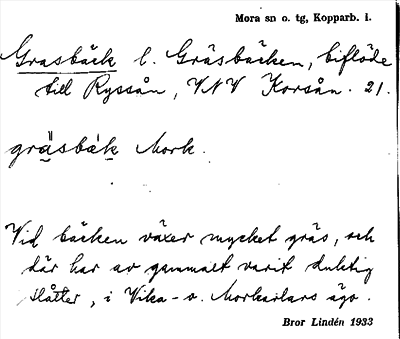 Mora sn o. tg, Kopparb. l.
Grasbäck l. Gräsbäcken, biflöde
till Ryssån, VNV Korsån. 21.
gräsbäk Mork.
Vid bäcken växer mycket gräs, och
där har av gammalt varit duktig
slåtter, i Vika- o. Morkarlars ägo.
Bror Lindén 1933